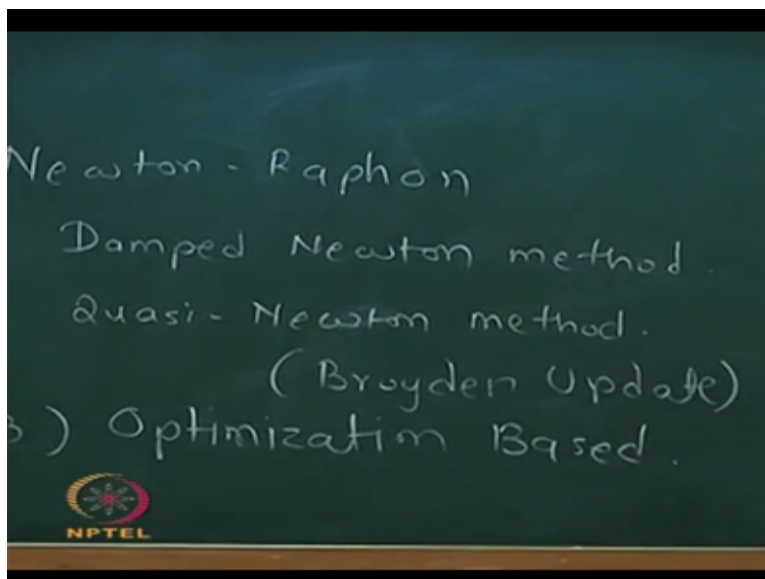 Newton - Raphon
Damped Newton method.
Quasi - Newton method.
(Broyden Update)
3) Optimization Based.
NPTEL